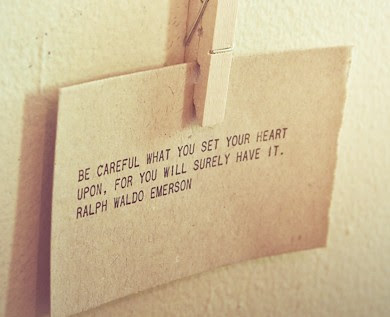 BE CAREFUL WHAT YOU SET YOUR HEART
UPON, FOR YOU WILL SURELY HAVE IT.
RALPH WALDO EMERSON